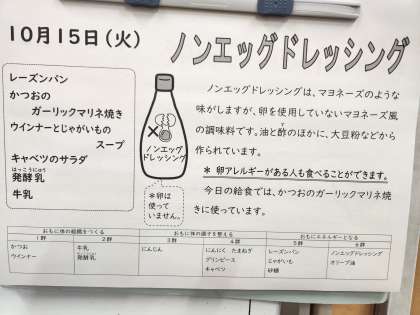 10月15日（火）
ノンエッグドレッシング
レーズンパン
かつおの
ガーリックマリネ焼き
ウインナーとじゃがいもの
スープ
キャベツのサラダ
はっこうにゅう
発酵乳
牛乳
ノンエッグ
ドレッシング
＊卵は
使って
いません。
ノンエッグドレッシングは、マヨネーズのような
味がしますが、卵を使用していないマヨネーズ風
の調味料です。油と酢のほかに、大豆粉などから
作られています。
＊ 卵アレルギーがある人も食べることができます。
今日の給食では、かつおのガーリックマリネ焼
きに使っています。
おもに体の組織をつくる
おもに体の調子を整える
おもにエネルギーとなる
1群 2群 3群 4群 5群 6群
かつお 牛乳 にんじん にんにく たまねぎ レーズンパン ノンエッグドレッシング
ウインナー 発酵乳 グリンピース じゃがいも オリーブ油
キャベツ 砂糖